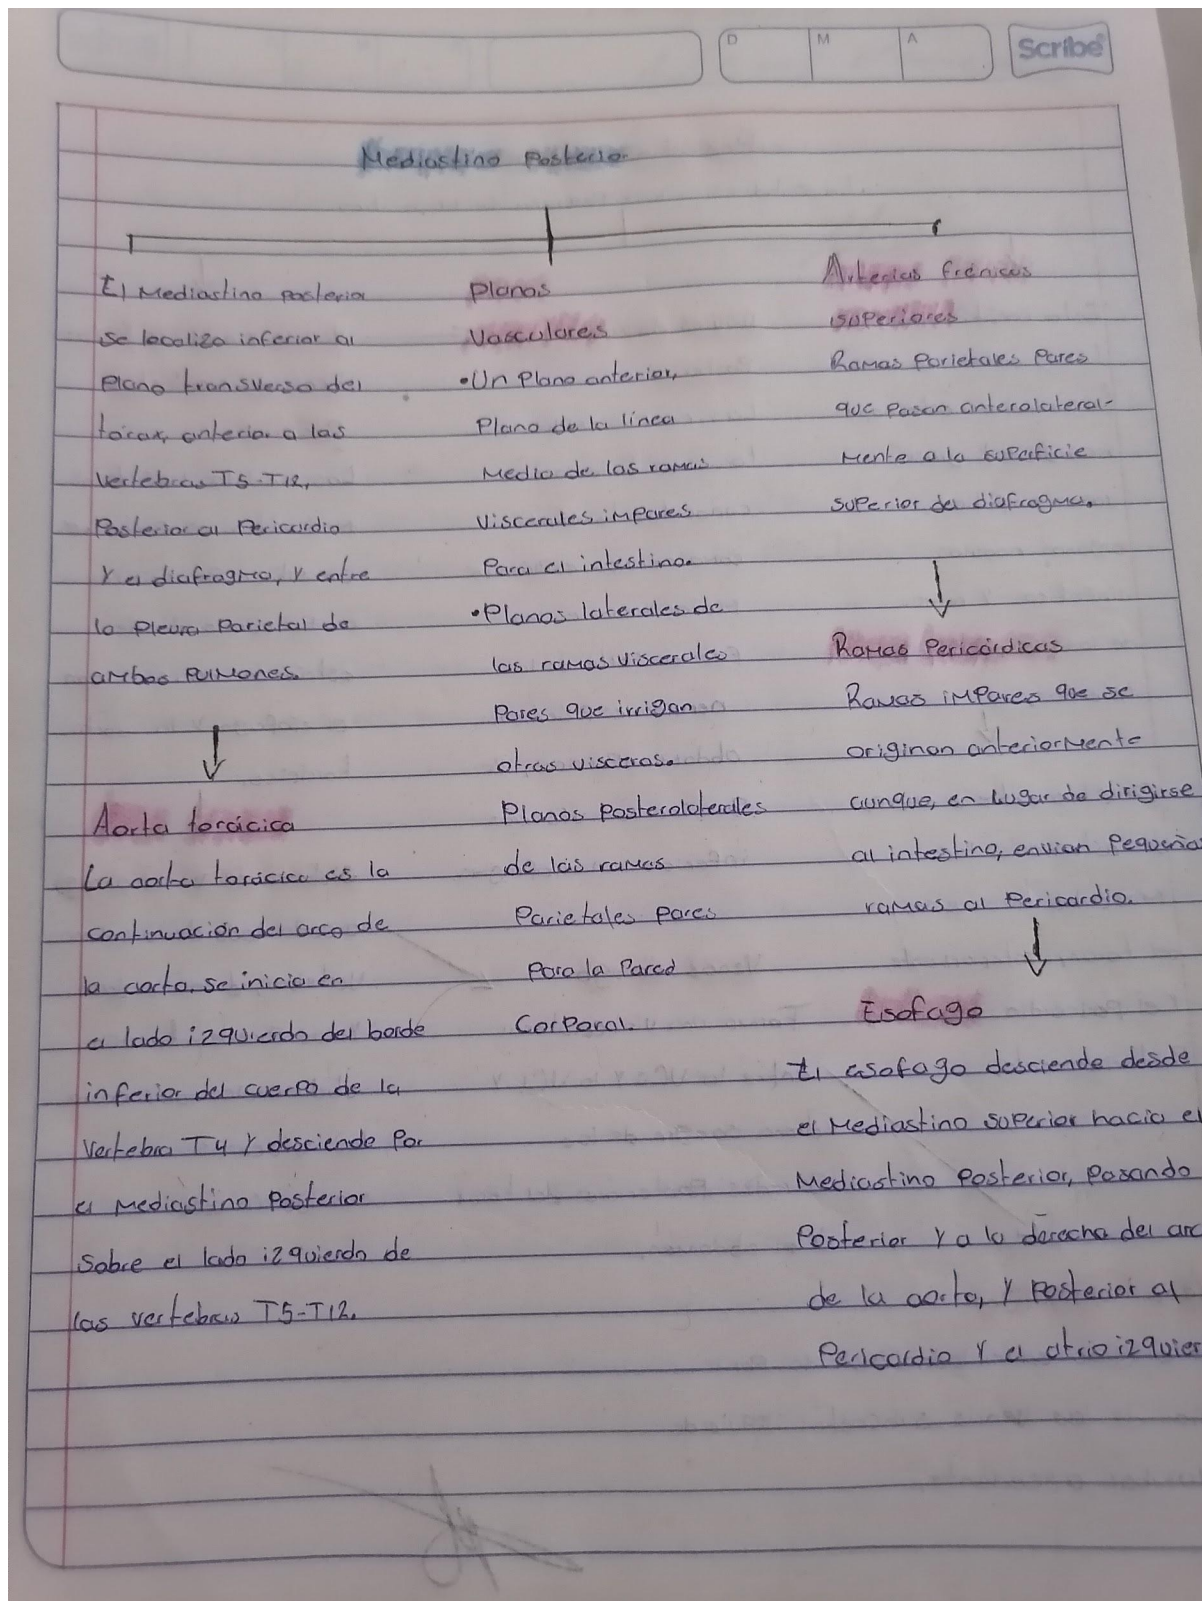 D M A
Scribe
Mediastino Posterior
El Mediastino posterior
se localiza inferior al
plano transverso del
tórax, anterior a las
vertebras T5-T12,
Posterior al Pericardio
y el diafragma, y entre
la pleura parietal de
ambos pulmones.
Aorta torácica
La aorta torácica es la
continuación del arco de
la aorta, se inicia en
el lado izquierdo del borde
inferior del cuerpo de la
vertebra T4 y desciende por
el mediastino posterior
sobre el lado izquierdo de
las vertebras T5-T12.
Planos
Vasculares
•Un plano anterior,
Plano de la línea
Media de las ramas
viscerales impares
Para el intestino.
•Planos laterales de
las ramas viscerales
Pares que irrigan
otras visceras.
Planos posterolaterales
de las ramas
Parietales pares
Para la Pared
Corporal.
Arterias frénicas
superiores
Ramas parietales Pares
que pasan anterolateral-
mente a la superficie
superior del diafragma.
Ramas Pericárdicas
Ramas impares que se
originan anteriormente
aunque, en lugar de dirigirse
al intestino, envian Pequeña
ramas al Pericardio.
Esofago
El esofago desciende desde
el Mediastino superior hacia el
Mediastino Posterior, pasando
Posterior y a la derecha del arc
de la aorta, y posterior al
Pericardio y el atrio izquier